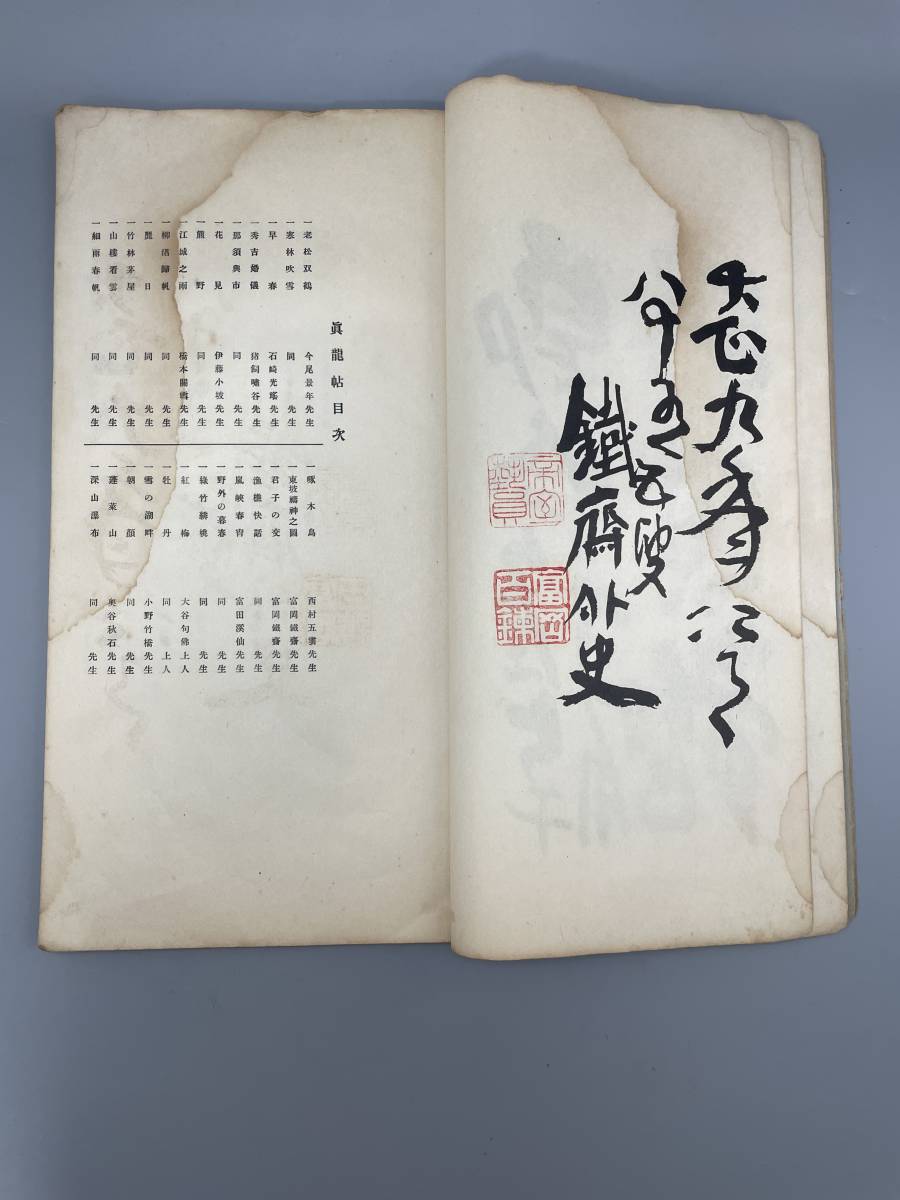 大正九年
鐵齋外史
富岡百錬
眞龍帖目次
一老松双鶴 今尾景年先生
一寒林吹雪 同 先生
一早春 石崎光瑤先生
一秀吉婚儀 猪飼嘯谷先生
一那須與市 同 先生
一花見 伊藤小坡先生
一熊野 同 先生
一江城之雨 橋本關雪先生
一柳渚歸帆 同 先生
一麗日 同 先生
一竹林茅屋 同 先生
一山樓看雲 同 先生
一細雨春帆 同 先生
一啄木鳥 西村五雲先生
一東坡禱神之圖 富岡鐵齋先生
一君子の交 富岡鐵齋先生
一漁樵快話 同 先生
一嵐峽春宵 富田溪仙先生
一野外の暮春 同 先生
一綠竹緋桃 同 先生
一紅梅 大谷句佛上人
一牡丹 同 上人
一雪の湖畔 小野竹橋先生
一朝顏 同 先生
一蓬萊山 奥谷秋石先生
一深山瀑布 同 先生